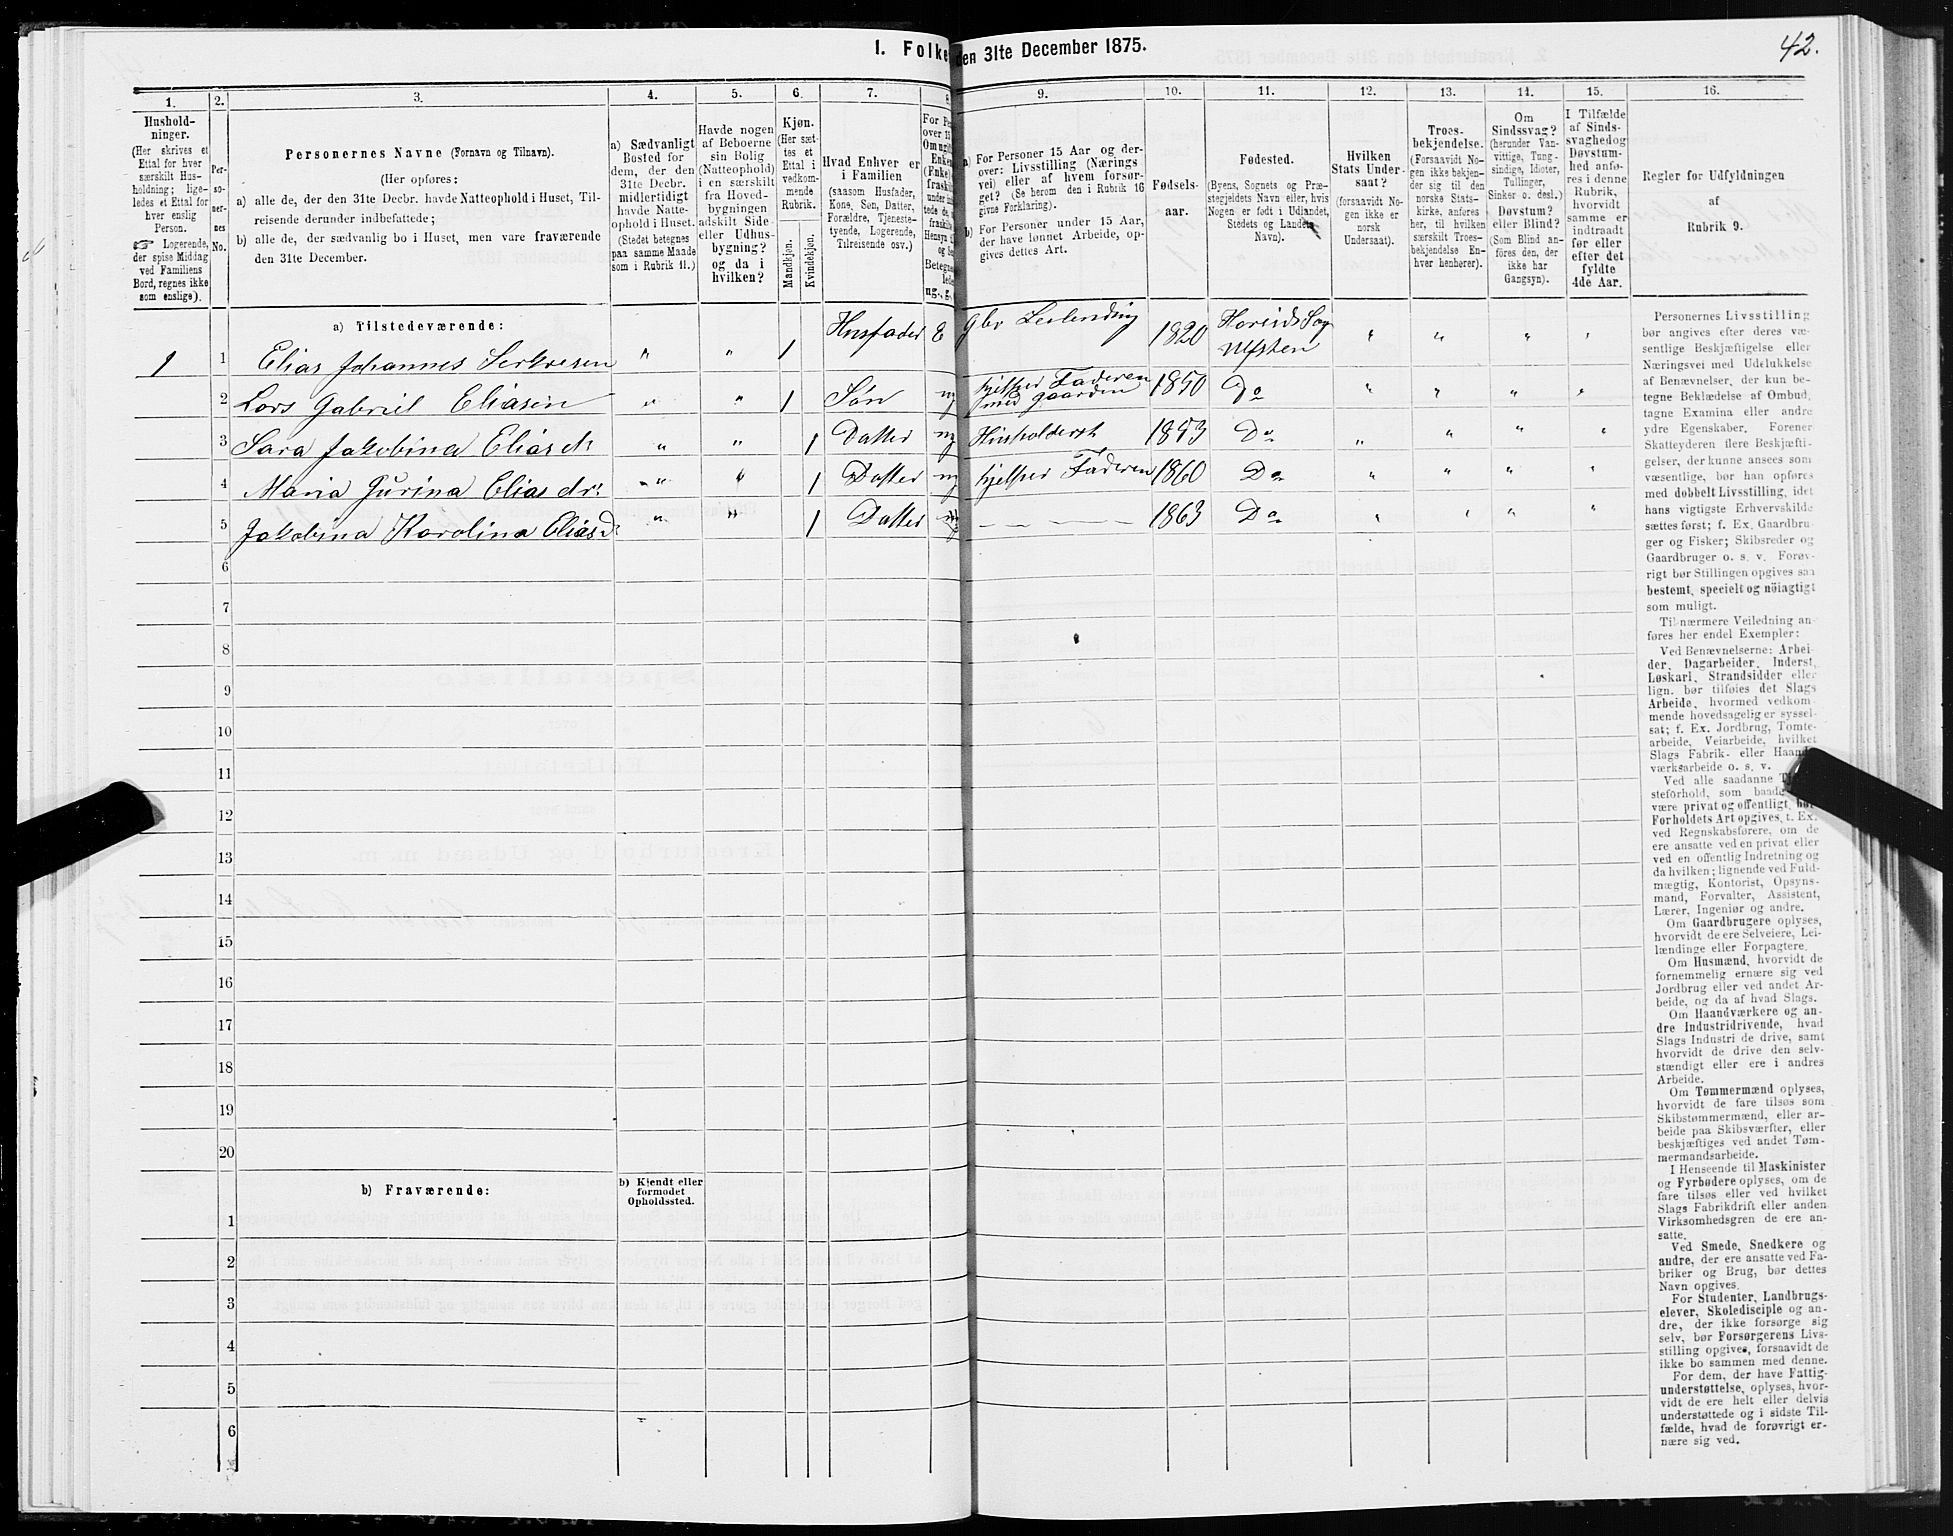 1. Folke
den 31te December 1875.
42.
1.
2.
3.
4.
5.
6.
7.
8.
9.
10.
11.
12.
13.
14.
15.
16.
Hushold-
ninger.
(Her skrives et
Ettal for hver
særskilt Hus-
holdning; lige-
ledes et Ettal for
hver enslig
Person.
☞ Logerende,
der spise Middag
ved Familiens
Bord, regnes ikke
som enslige).
Per-
so-
ner-
nes
No.
Personernes Navne (Fornavn og Tilnavn).
(Her opføres:
a) alle de, der den 31te Decbr. havde Natteophold i Huset, Til-
reisende derunder indbefattede;
b) alle de, der sædvanlig bo i Huset, men vare fraværende
den 31te December.
a) Sædvanligt
Bosted for
dem, der den
31te Decbr.
midlertidigt
havde Natte-
ophold i Huset.
(Stedet betegnes
paa samme Maade
som i Rubrik 11.)
Havde nogen
af Beboerne
sin Bolig
(Natteophold)
i en særskilt
fra Hoved-
bygningen
adskilt Side-
eller Udhus-
bygning?
og da i
hvilken?
Kjøn.
(Her sæt-
tes et
Ettal i
vedkom-
mende
Rubrik.
Mandkjøn.
Kvindekjøn.
Hvad Enhver er
i Familien
(saasom Husfader,
Kone, Søn, Datter,
Forældre, Tjeneste-
tyende, Logerende,
Tilreisende osv.)
For Pe
over 15
Om ugift
Enke
(Enke)
fraskil
under in
tede de,
fraskilt
Hensyn t
og Se
Betegne
lede
ug., g.,
a) For Personer 15 Aar og der-
over: Livsstilling (Nærings-
vei) eller af hvem forsør-
get? (Se herom den i Rubrik 16
givne Forklaring).
b) For Personer under 15 Aar,
der have lønnet Arbeide, op-
gives dettes Art.
Fødsels-
aar.
Fødested.
(Byens, Sognets og Præ-
stegjeldets Navn eller, hvis
Nogen er født i Udlandet,
Stedets og Landets
Navn).
Hvilken
Stats Under-
saat?
(forsaavidt No-
gen ikke er
norsk
Undersaat).
Troes-
bekjendelse.
(Forsaavidt No-
gen ikke bekjen-
der sig til den
norske Stats-
kirke, anføres
her, til hvilken
særskilt Troes-
bekjendelse En-
hver henhører).
Om
Sindssvag?
(herunder Van-
vittige, Tung-
sindige, Idioter,
Tullinger,
Sinker o. desl.)
Døvstum?
eller Blind?
(Som Blind an-
føres den, der
ikke har
Gangsyn).
I Tilfælde
af Sinds-
svaghed og
Døvstum-
hed anfø-
res i denne
Rubrik,
hvorvidt
samme er
indtraadt
før eller
efter det
fyldte
4de Aar.
Regler for Udfyldningen
af
Rubrik 9.
a) Tilstedeværende:
1 1 Elias Johannes " " 1 Husfader E gbr Leilending 1820 Hareids Sog " " " "
Ulfsten
2 Lars Gabriel Eliasen " " 1 Søn ug hjelper Faderen 1850 Do " " " "
med gaarden
3 Sara Jakobina Eliasdr " " 1 Datter ug Husholderst 1853 Do " " " "
4 Maria Jurina Eliasdr: " " 1 Datter ug hjelper Faderen 1860 Do " " " "
5 Jakobina Karolina Eliasd: " " 1 Datter ug — — — — 1863 Do " " " "
6
7
8
9
10
11
12
13
14
15
16
17
18
19
20
b) Fraværende:
b) Kjendt eller
formodet
Opholdssted.
1
2
3
4
5
6
Personernes Livsstilling
bør angives efter deres væ-
sentlige Beskjæftigelse eller
Næringsvei med Udelukkelse
af Benævnelser, der kun be-
tegne Beklædelse af Ombud,
tagne Examina eller andre
ydre Egenskaber. Forener
Skatteyderen flere Beskjæfti-
gelser, der kunne ansees som
væsentlige, bør han opføres
med dobbelt Livsstilling, idet
hans vigtigste Erhvervskilde
sættes først; f. Ex. Gaardbru-
ger og Fisker; Skibsreder og
Gaardbruger o. s. v. Forøv-
rigt bør Stillingen opgives saa
bestemt, specielt og nøiagtigt
som muligt.
Til nærmere Veiledning an-
føres her endel Exempler:
Ved Benævnelserne: Arbei-
der, Dagarbeider, Inderst,
Løskarl, Strandsidder eller
lign. bør tilføies det Slags
Arbeide, hvormed vedkom-
mende hovedsagelig er syssel-
sat; f. Ex. Jordbrug, Tomte-
arbeide, Veiarbeide, hvilket
Slags Fabrik- eller Haand-
værksarbeide o. s. v.
Ved alle saadanne
steforhold, som baade
være privat og offentligt, bør
Forholdets Art opgives, t. Ex.
ved Regnskabsførere, om de
ere ansatte ved en privat eller
ved en offentlig Indretning og
da hvilken; lignende ved Fuld-
mægtig, Kontorist, Opsyns-
mand, Forvalter, Assistent,
Lærer, Ingeniør og andre.
Om Gaardbrugere oplyses,
hvorvidt de ere Selveiere, Lei-
lændinge eller Forpagtere.
Om Husmænd, hvorvidt de
fornemmelig ernære sig ved
Jordbrug eller ved andet Ar-
beide, og da af hvad Slags.
Om Haandværkere og an-
dre Industridrivende, hvad
Slags Industri de drive, samt
hvorvidt de drive den selv-
stændigt eller ere i andres
Arbeide.
Om Tømmermænd oplyses,
hvorvidt de fare tilsøs som
Skibstømmermænd, eller ar-
beide paa Skibsværfter, eller
beskjæftiges ved andet Tøm-
mermandsarbeide.
I Henseende til Maskinister
og Fyrbødere oplyses, om de
fare tilsøs eller ved hvilket
Slags Fabrikdrift eller anden
Virksomhedsgren de ere an-
satte.
Ved Smede, Snedkere og
andre, der ere ansatte ved Fa-
briker og Brug, bør dettes
Navn opgives.
For Studenter, Landbrugs-
elever, Skoledisciple og an-
dre, der ikke forsørge sig
selv, bør Forsørgerens Livs-
stilling opgives, forsaavidt de
ikke bo sammen med denne.
For dem, der have Fattig-
understøttelse, oplyses, hvor-
vidt de ere helt eller delvis
understøttede og i sidste Til-
fælde, hvad de forøvrigt er-
nære sig ved.